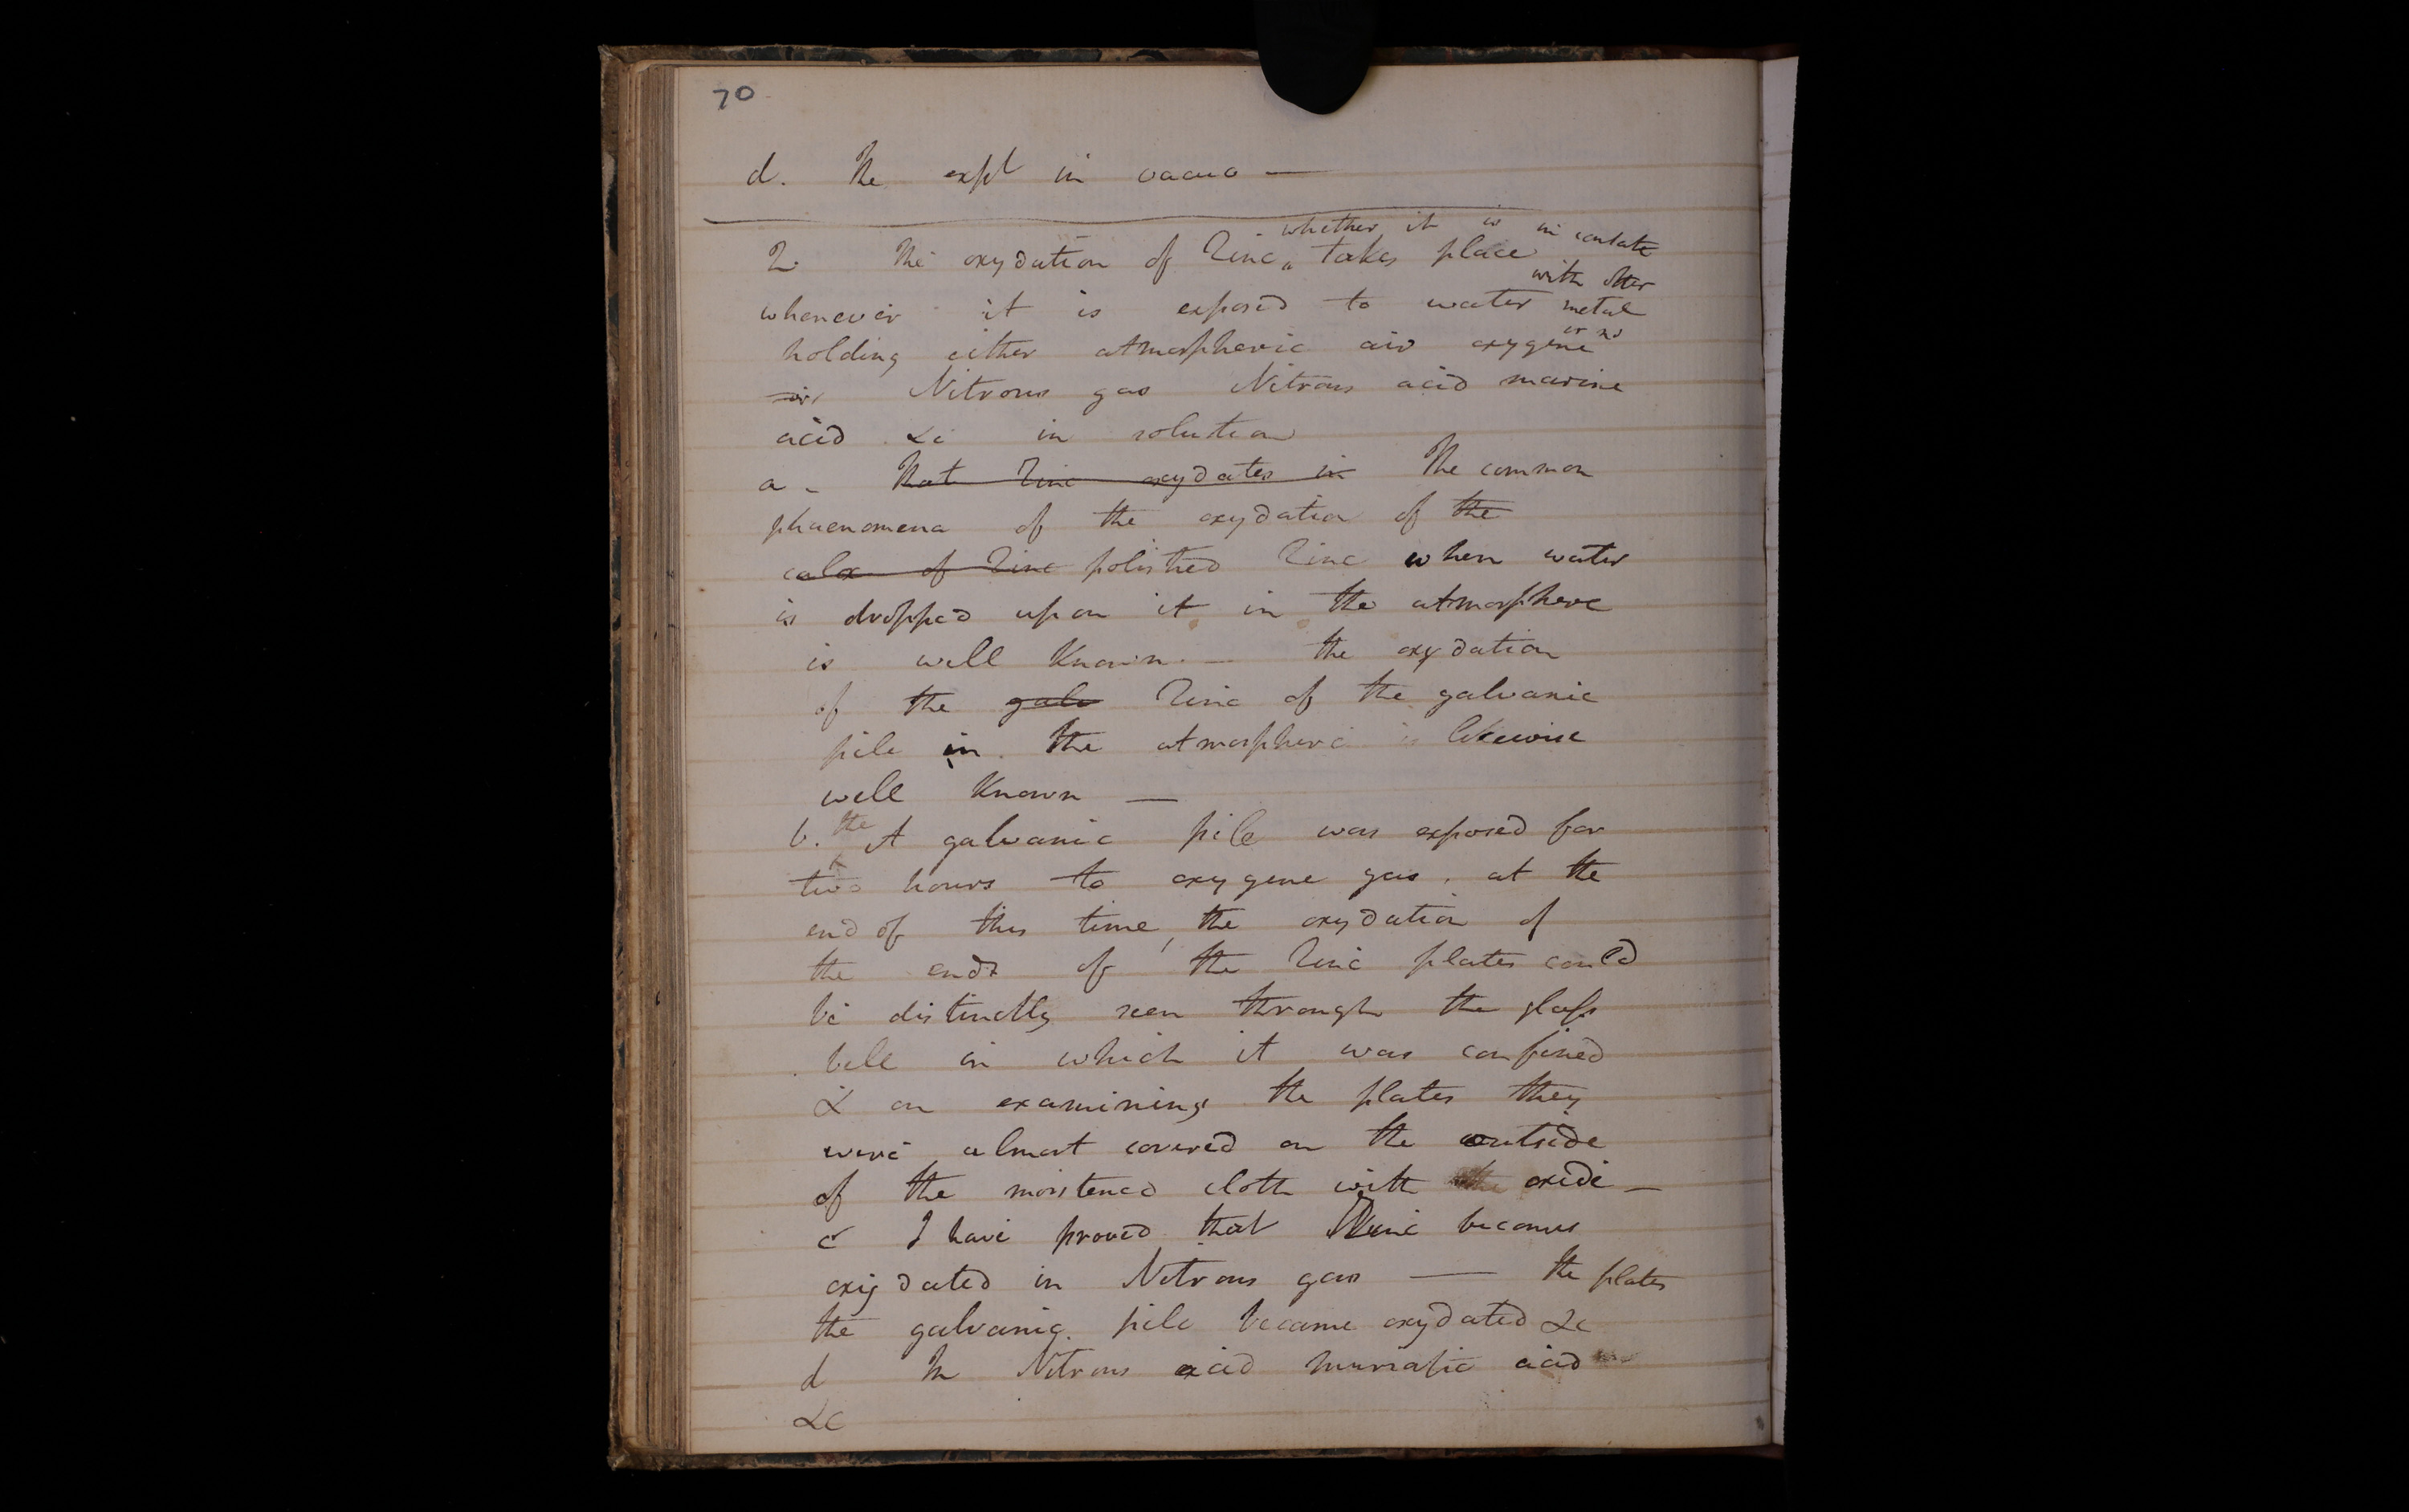 70
d. The expt in vacuo —
whether it is in contate
2. The oxydation of Zinc takes place
with other
whenever it is exposed to water metal
or no
holding either atmospheric air oxygene
or Nitrous gas Nitrous acid marine
acid &c in solution
a - That Zinc oxydates in The common
phaenomena of the oxydation of the
calx of Zinc polished Zinc when water
is dropped upon it in the atmosphere
is well known. — the oxydation
of the galv Zinc of the galvanic
pile in the atmosphere is likewise
well known —
b. the A galvanic pile was exposed for
two hours to oxygene gas. at the
end of this time, the oxydation of
the ends of the Zinc plates could
be distinctly seen through the glass
bell in which it was confined
& on examining the plates they
were almost covered on the outside
of the moistened cloth with the oxide —
c I have proved that Zinc becomes
oxydated in Nitrous gas — the plates
the galvanic pile became oxydated &c
d In Nitrous acid muriatic acid
&c